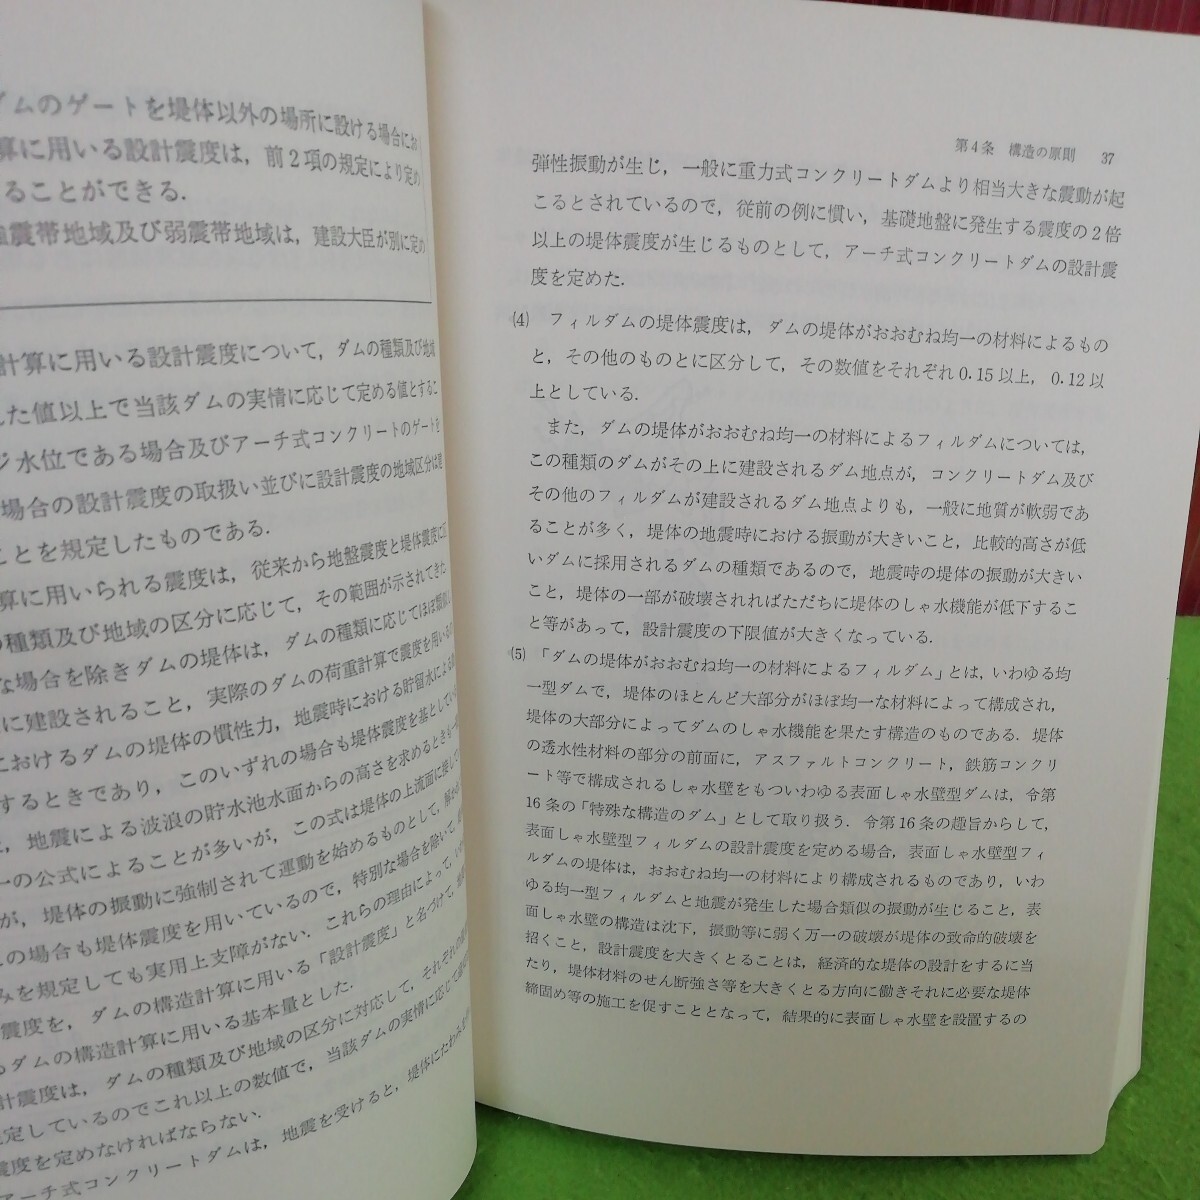 ダムのゲートを堤体以外の場所に設ける場合にお
算に用いる設計震度は，前2項の規定により定め
ることができる．
強震帯地域及び弱震帯地域は，建設大臣が別に定め
計算に用いる設計震度について，ダムの種類及び地域
した値以上で当該ダムの実情に応じて定める値とするこ
ジ水位である場合及びアーチ式コンクリートのゲートを
場合の設計震度の取扱い並びに設計震度の地域区分は建
ことを規定したものである．
算に用いられる震度は，従来から地盤震度と堤体震度に
の種類及び地域の区分に応じて，その範囲が示されてきた
な場合を除きダムの堤体は，ダムの種類に応じてほぼ類似し
に建設されること，実際のダムの荷重計算で震度を用いるの
におけるダムの堤体の慣性力，地震時における貯留水による
するときであり，このいずれの場合も堤体震度を基としている
，地震による波浪の貯水池水面からの高さを求めるときも
の公式によることが多いが，この式は堤体の上流面に接して
が，堤体の振動に強制されて運動を始めるものとして，解
の場合も堤体震度を用いているので，特別な場合を除いて，
みを規定しても実用上支障がない．これらの理由によって，
震度を，ダムの構造計算に用いる「設計震度」と名づけて，
るダムの構造計算に用いる基本量とした．
計震度は，ダムの種類及び地域の区分に対応して，それぞれの
定しているのでこれ以上の数値で，当該ダムの実情に応じて
震度を定めなければならない．
アーチ式コンクリートダムは，地震を受けると，堤体にたわみ
第4条 構造の原則 37
弾性振動が生じ，一般に重力式コンクリートダムより相当大きな震動が起
こるとされているので，従前の例に慣い，基礎地盤に発生する震度の2倍
以上の堤体震度が生じるものとして，アーチ式コンクリートダムの設計震
度を定めた．
(4) フィルダムの堤体震度は，ダムの堤体がおおむね均一の材料によるもの
と，その他のものとに区分して，その数値をそれぞれ0.15以上，0.12以
上としている．
また，ダムの堤体がおおむね均一の材料によるフィルダムについては，
この種類のダムがその上に建設されるダム地点が，コンクリートダム及び
その他のフィルダムが建設されるダム地点よりも，一般に地質が軟弱であ
ることが多く，堤体の地震時における振動が大きいこと，比較的高さが低
いダムに採用されるダムの種類であるので，地震時の堤体の振動が大きい
こと，堤体の一部が破壊されればただちに堤体のしゃ水機能が低下するこ
と等があって，設計震度の下限値が大きくなっている．
(5) 「ダムの堤体がおおむね均一の材料によるフィルダム」とは，いわゆる均
一型ダムで，堤体のほとんど大部分がほぼ均一な材料によって構成され，
堤体の大部分によってダムのしゃ水機能を果たす構造のものである．堤体
の透水性材料の部分の前面に，アスファルトコンクリート，鉄筋コンクリ
ート等で構成されるしゃ水壁をもついわゆる表面しゃ水壁型ダムは，令第
16条の「特殊な構造のダム」として取り扱う．令第16条の趣旨からして，
表面しゃ水壁型フィルダムの設計震度を定める場合，表面しゃ水壁型フィ
ルダムの堤体は，おおむね均一の材料により構成されるものであり，いわ
ゆる均一型フィルダムと地震が発生した場合類似の振動が生じること，表
面しゃ水壁の構造は沈下，振動等に弱く万一の破壊が堤体の致命的破壊を
招くこと，設計震度を大きくとることは，経済的な堤体の設計をするに当
たり，堤体材料のせん断強さ等を大きくとる方向に働きそれに必要な堤体
締固め等の施工を促すこととなって，結果的に表面しゃ水壁を設置するの